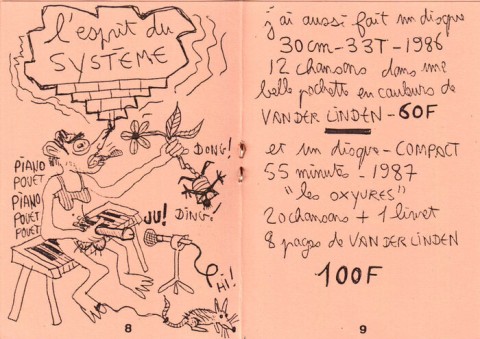 l'esprit du
SYSTÈME
DONG!
PIANO
POUET
PIANO
POUET
POUET
JU!
DING!
HI!
8
j'ai aussi fait un disque
30cm-33T-1986
12 chansons dans une
belle pochette en couleurs de
VAN DER LINDEN - 60F
et un disque-COMPACT
55 minutes - 1987
"les OXYURES"
20 chansons + 1 livret
8 pages de VAN DER LINDEN
100F
9